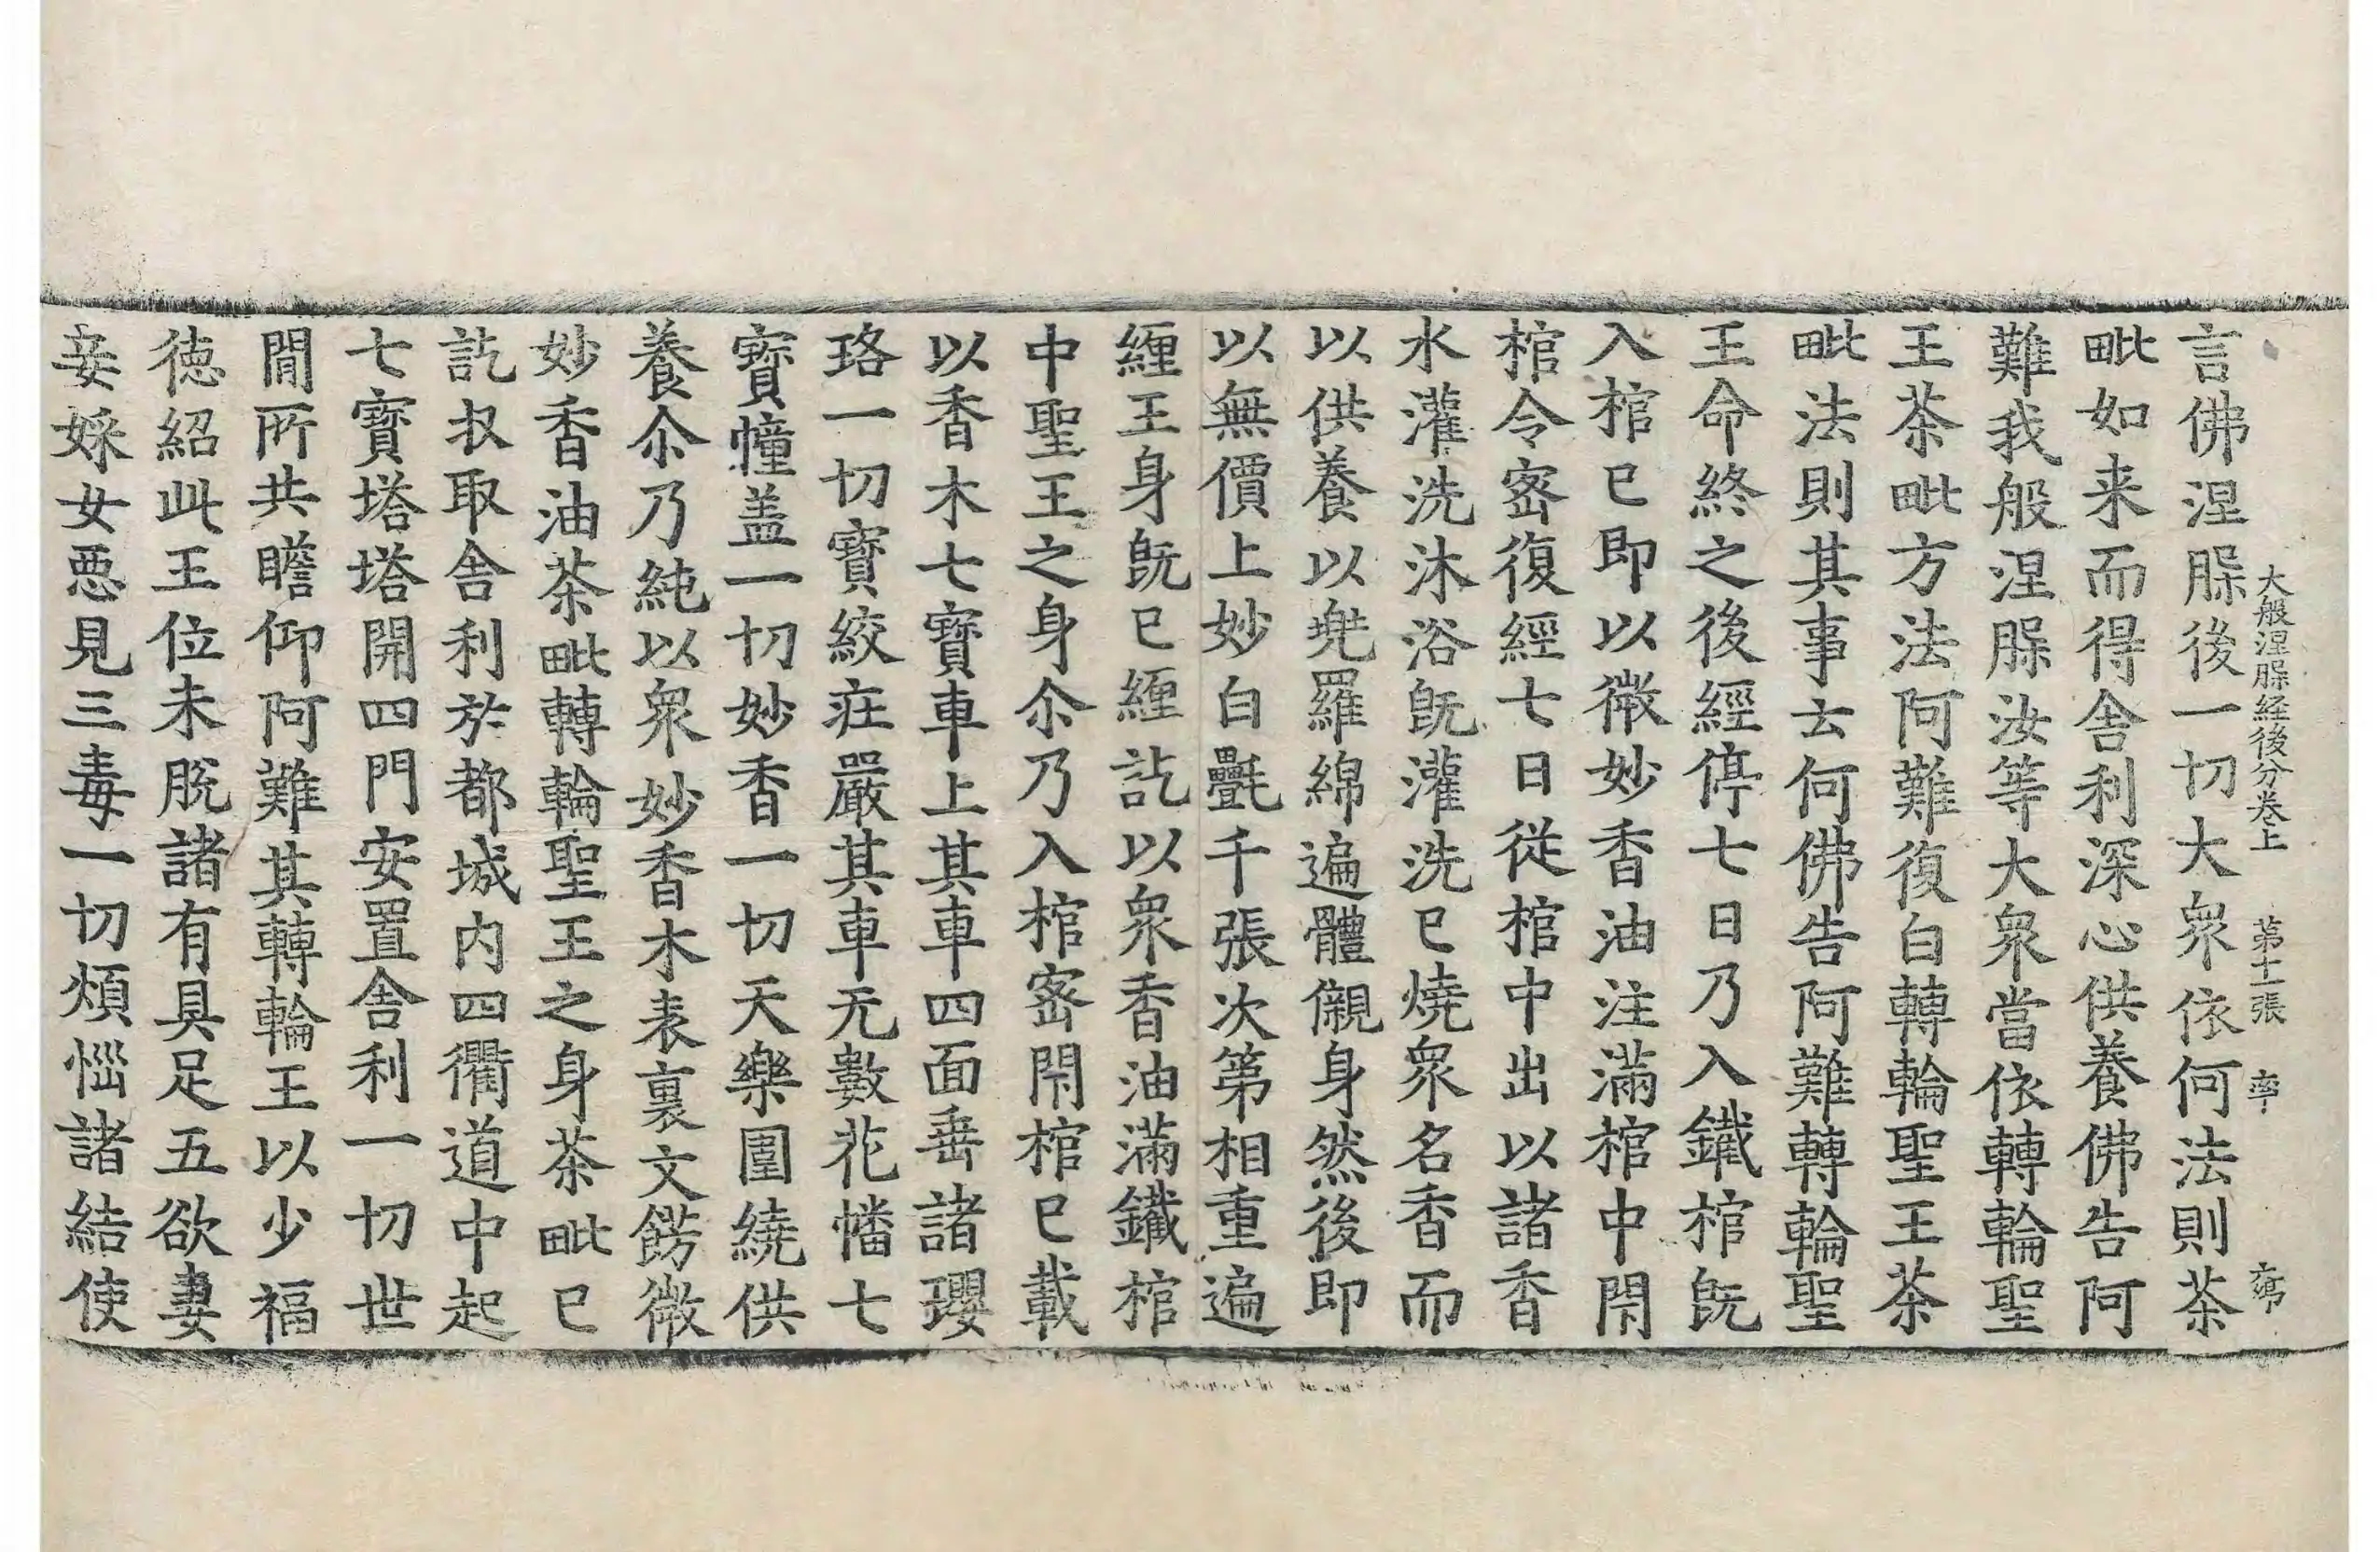 大般涅槃経後分卷上 第十一張 率
言佛涅槃後一切大衆依何法則茶
毗如来而得舍利深心供養佛告阿
難我般涅槃汝等大衆當依轉輪聖
王茶毗方法阿難復白轉輪聖王茶
毗法則其事云何佛告阿難轉輪聖
王命終之後經停七日乃入鐵棺旣
入棺已即以微妙香油注滿棺中閇
棺令密復經七日從棺中出以諸香
水灌洗沐浴旣灌洗已燒衆名香而
以供養以兠羅綿遍體儭身然後即
以無價上妙白㲲千張次第相重遍
纏王身旣已纏訖以衆香油滿鐵棺
中聖王之身尒乃入棺密閇棺已載
以香木七寶車上其車四面垂諸瓔
珞一切寶絞莊嚴其車无數花幡七
寶幢盖一切妙香一切天樂圍繞供
養尒乃純以衆妙香木表裏文餝微
妙香油茶毗轉輪聖王之身茶毗已
訖収取舍利於都城内四衢道中起
七寶塔塔開四門安置舍利一切世
間所共瞻仰阿難其轉輪王以少福
徳紹此王位未脫諸有具足五欲妻
妾婇女惡見三毒一切煩惱諸結使